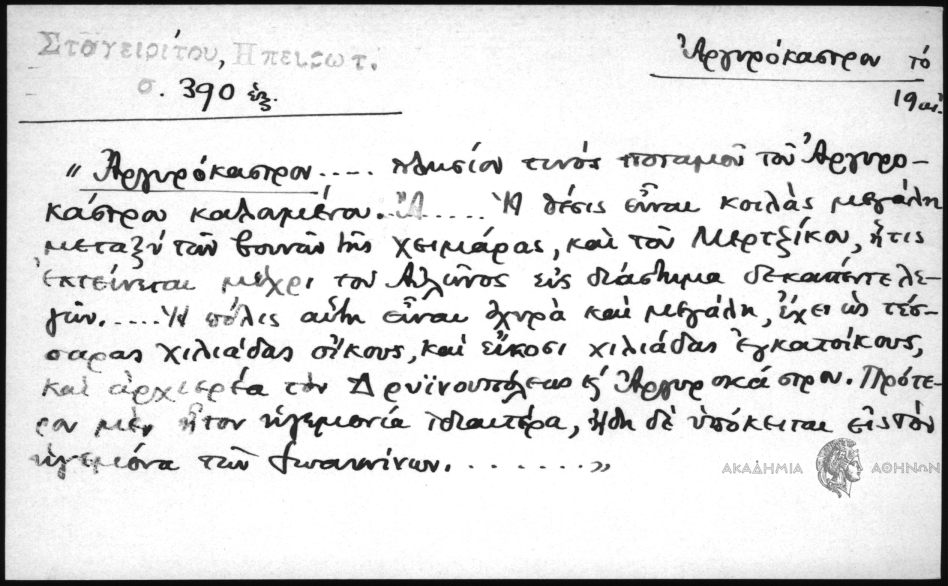 Σταγειρίτου, Ηπειρωτ.
σ. 390 ἑξ.
Ἀργυρόκαστρον τό
19 αἰ.
"Ἀργυρόκαστρον..... πλησίον τινός ποταμοῦ τοῦ Ἀργυρο-
κάστρου καλουμένου. ...... Ἡ θέσις εἶναι κοιλὰς μεγάλη
μεταξὺ τῶν βουνῶν τῆς Χειμάρας, καὶ τοῦ Μερτζίκου, ἥτις
ἐκτείνεται μέχρι τοῦ Αὐλῶνος εἰς διάστημα δεκαπέντε λε-
γῶν. ..... Ἡ πόλις αὕτη εἶναι ὀχυρὰ καὶ μεγάλη, ἔχει ὡς τέσ-
σαρας χιλιάδας οἴκους, καὶ εἴκοσι χιλιάδας ἐγκατοίκους,
καὶ ἀρχιερέα τὸν Δρυϊνουπόλεως κ' Ἀργυροκάστρου. Πρότε-
ρον μὲν ἦτον ἡγεμονία ἰδιαιτέρα, ἤδη δὲ ὑπόκειται εἰς τὸν
ἡγεμόνα τῶν Ἰωαννίνων. ........"
ΑΚΑΔΗΜΙΑ ΑΘΗΝΩΝ